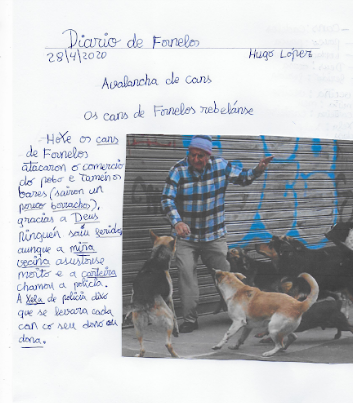 Diario de Fornelos
28/4/2020 Hugo Lopez
Avalancha de cans
Os cans de Fornelos rebelánse
Hoxe os cans
de Fornelos
atacaron o comercio
do pobo e tamén os
bares (sairon un
pouco borrachos),
gracias a Deus
ninguén saiu ferido,
aunque a miña
veciña asustouse
moito e a carteira
chamou a policía.
A xefa de policía dixo
que se levara cada
can co seu dono ou
dona.